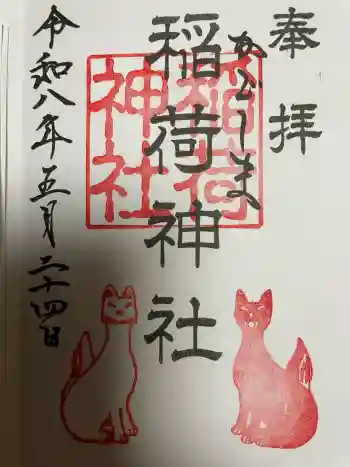 奉拝
かどしま
稲荷神社
稲荷
神社
令和八年五月二十四日